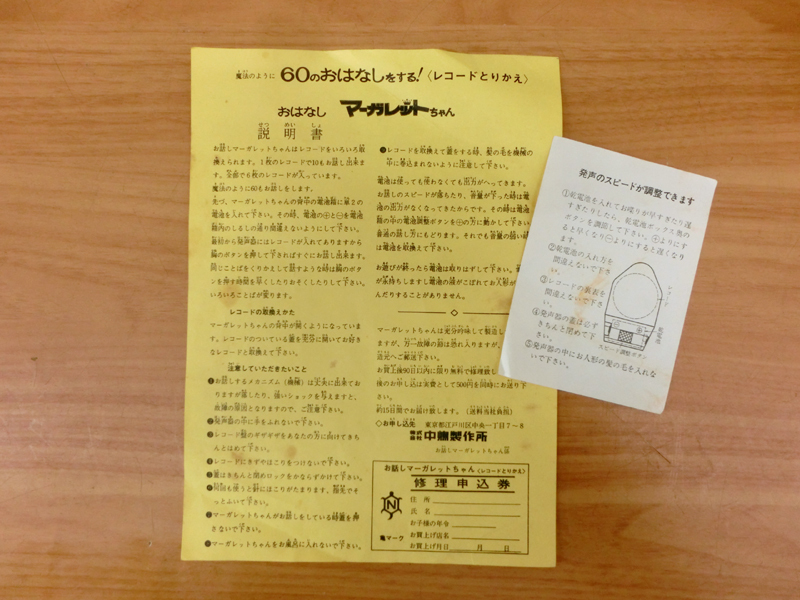 魔法のように 60のおはなしをする!〈レコードとりかえ〉
おはなし マーガレットちゃん
せつ めい しょ
説明書
お話しマーガレットちゃんはレコードをいろいろ取
換えられます。1枚のレコードで10もお話し出来ま
す。全部で6枚のレコードが入っています。
魔法のように60もお話しをします。
先づ、マーガレットちゃんの背中の電池箱に単2の
電池を入れて下さい。その時、電池の⊕と⊖を電池
箱内のしるしの通り間違えないようにして下さい。
最初から発声器にはレコードが入れてありますから
胸のボタンを押して下さればすぐにお話し出来ます。
同じことばをくりかえして話すような時は胸のボタ
ンを押す時間を早くしたりおそくしたりして下さい。
いろいろことばが変ります。
レコードの取換えかた
マーガレットちゃんの背中が開くようになっていま
す。レコードのついている蓋を充分に開いてお好き
なレコードと取換えて下さい。
注意していただきたいこと
❶お話しするメカニズム(機械)は丈夫に出来てお
りますが落したり、強いショックを与えますと、
故障の原因となりますので、ご注意下さい。
❷発声器の中に手をふれないで下さい。
❸レコード盤のギザギザをあなたの方に向けてきち
んとはめて下さい。
❹レコードにきずやほこりをつけないで下さい。
❺蓋はきちんと閉めロックをかならずかけて下さい。
❻何回も使うと針にほこりがたまります。指先でそ
っとふいて下さい。
❼マーガレットちゃんがお話しをしている時蓋を押
さないで下さい。
❽マーガレットちゃんをお風呂に入れないで下さい。
●レコードを取換えて蓋をする時、髪の毛を機械の
中に巻込まれないように注意して下さい。
電池は使っても使わなくても出力がへってきます。
お話しのスピードが落ちたり、音量が下った時は電
池の出力がなくなってきたからです。その時は電池
箱の中の電池調整ボタンを⊕の方に動かして下さい
普通の話し方にもどります。それでも音量の弱い時
は電池を取換えて下さい。
お遊びが終ったら電池は取りはずして下さい。
が永持ちしますし電池の液がこぼれてお人形が
んだりすることがありません。
マーガレットちゃんは充分吟味して製造し
ますが、万一故障の節は恐れ入りますが、
造元へご郵送下さい。
お買上後90日以内に限り無料で修理致し
後のお申し込は実費として500円を同時にお送り下
さい。
約15日間でお届け致します。〔送料当社負担〕
◇お申し込先 東京都江戸川区中央一丁目7~8
株式会社 中鶴製作所
お話しマーガレットちゃん係
お話しマーガレットちゃん〈レコードとりかえ〉
修理申込券
住所
氏名
お子様の年令
お買上げ店名
お買上げ月日 月 日
N
亀マーク
発声のスピードが調整できます
①乾電池を入れてお喋りが早すぎたり遅
すぎたりしたら、乾電池ボックス奥の
ボタンを調節して下さい。⊕よりにす
ると早くなり⊖よりにすると遅くなり
ます。
②乾電池の入れ方を
間違えないで下さ
い。
③レコードの裏表を
間違えないで下さ
い。
④発声器の蓋は必ず
きちんと閉めて下
さい。
⑤発声器の中にお人形の髪の毛を入れな
いで下さい。
レコード
乾電池
スピード調整ボタン